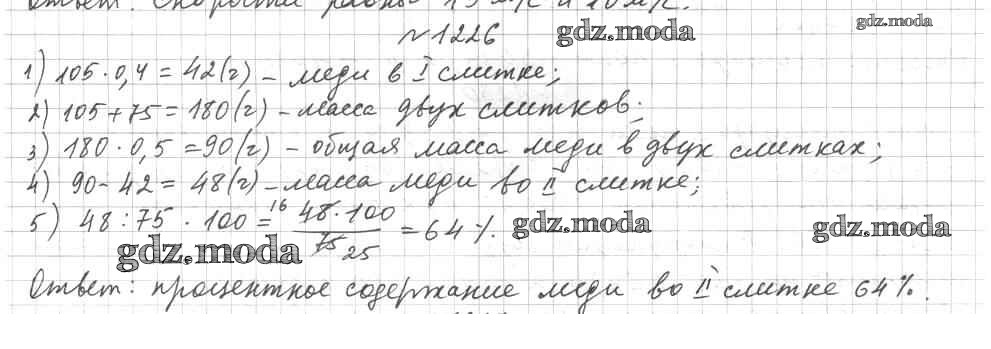 Ответ: Скорости равны 15 м/с и 10 м/с.
№1226
gdz.moda
gdz.moda
1) 105 · 0,4 = 42(г) – меди в I слитке;
2) 105 + 75 = 180(г) – масса двух слитков;
3) 180 · 0,5 = 90(г) – общая масса меди в двух слитках;
4) 90 - 42 = 48(г) – масса меди во II слитке;
5) 48 : 75 · 100 = 16 48 · 100 / 75 25 = 64 %.
gdz.moda
gdz.moda
gdz.moda
Ответ: процентное содержание меди во II слитке 64%.